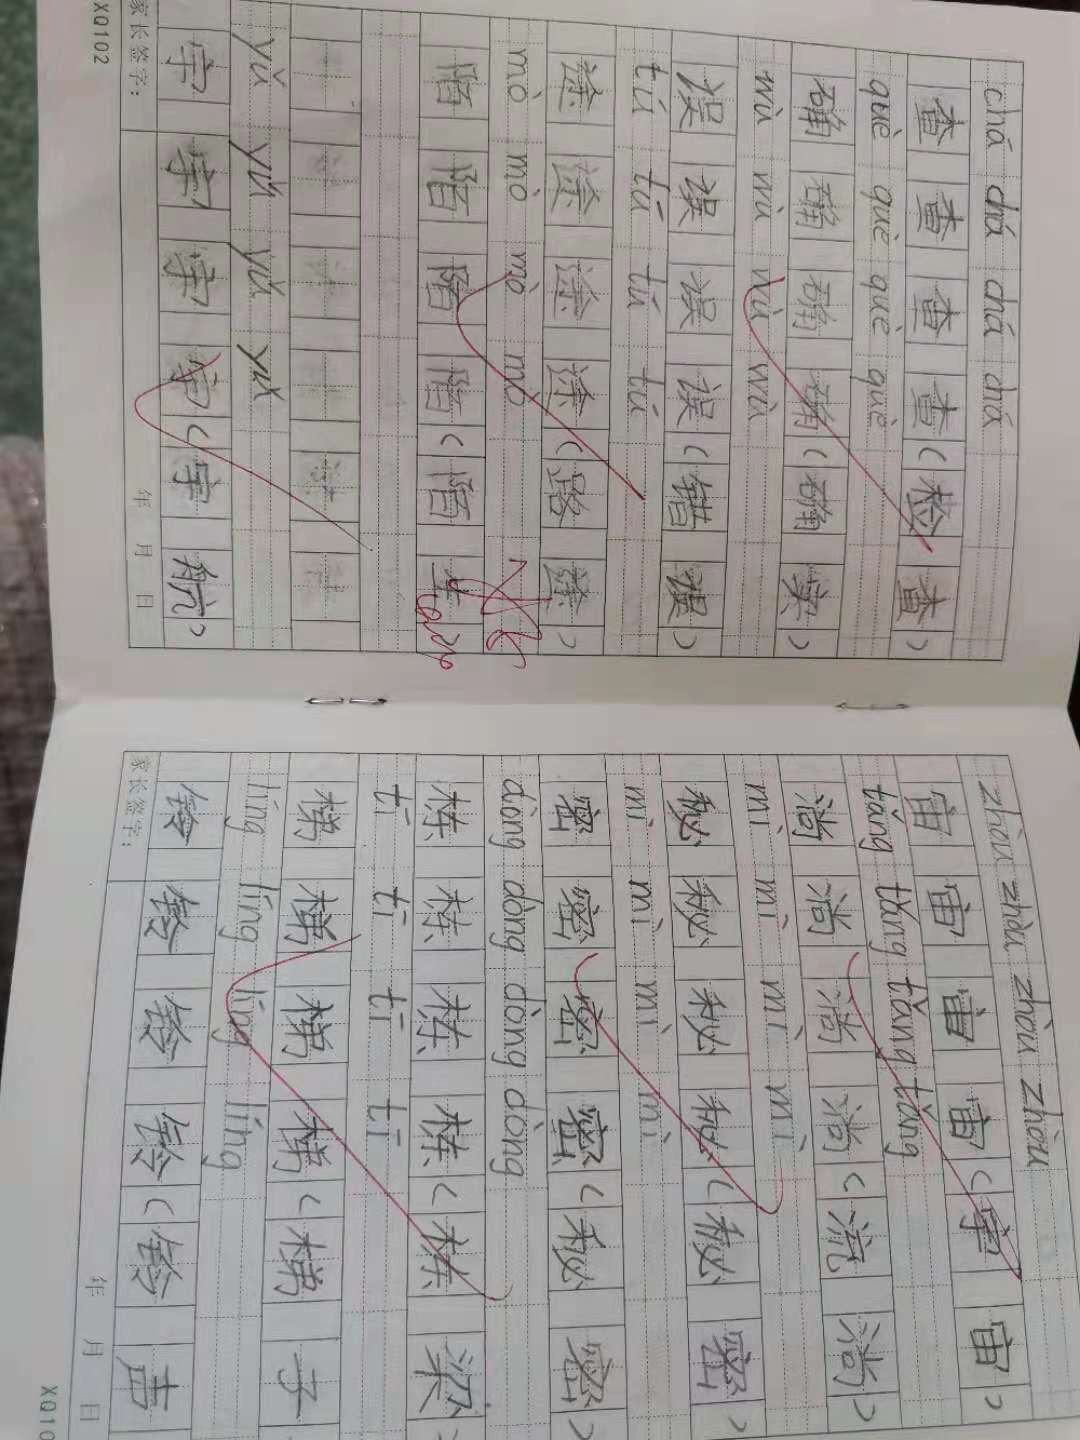 chá chá chá chá
查查查查（检查）
què què què què
确确确确（确实）
wù wù wù wù
误误误误（错误）
tú tú tú tú
途途途途（路途）
mò mò mò mò
陌陌陌陌（陌生）
yǔ yǔ yǔ yǔ
宇宇宇宇（宇航）
家长签字：
年 月 日
XQ102
zhòu zhòu zhòu zhòu
宙宙宙宙（宇宙）
tǎng tǎng tǎng tǎng
淌淌淌淌（流淌）
mì mì mì mì
秘秘秘秘（秘密）
mì mì mì mì
密密密密（秘密）
dòng dòng dòng dòng
栋栋栋栋（栋梁）
tī tī tī tī
梯梯梯梯（梯子
líng líng líng líng
铃铃铃铃（铃声
家长签字：
年 月 日
XQ10